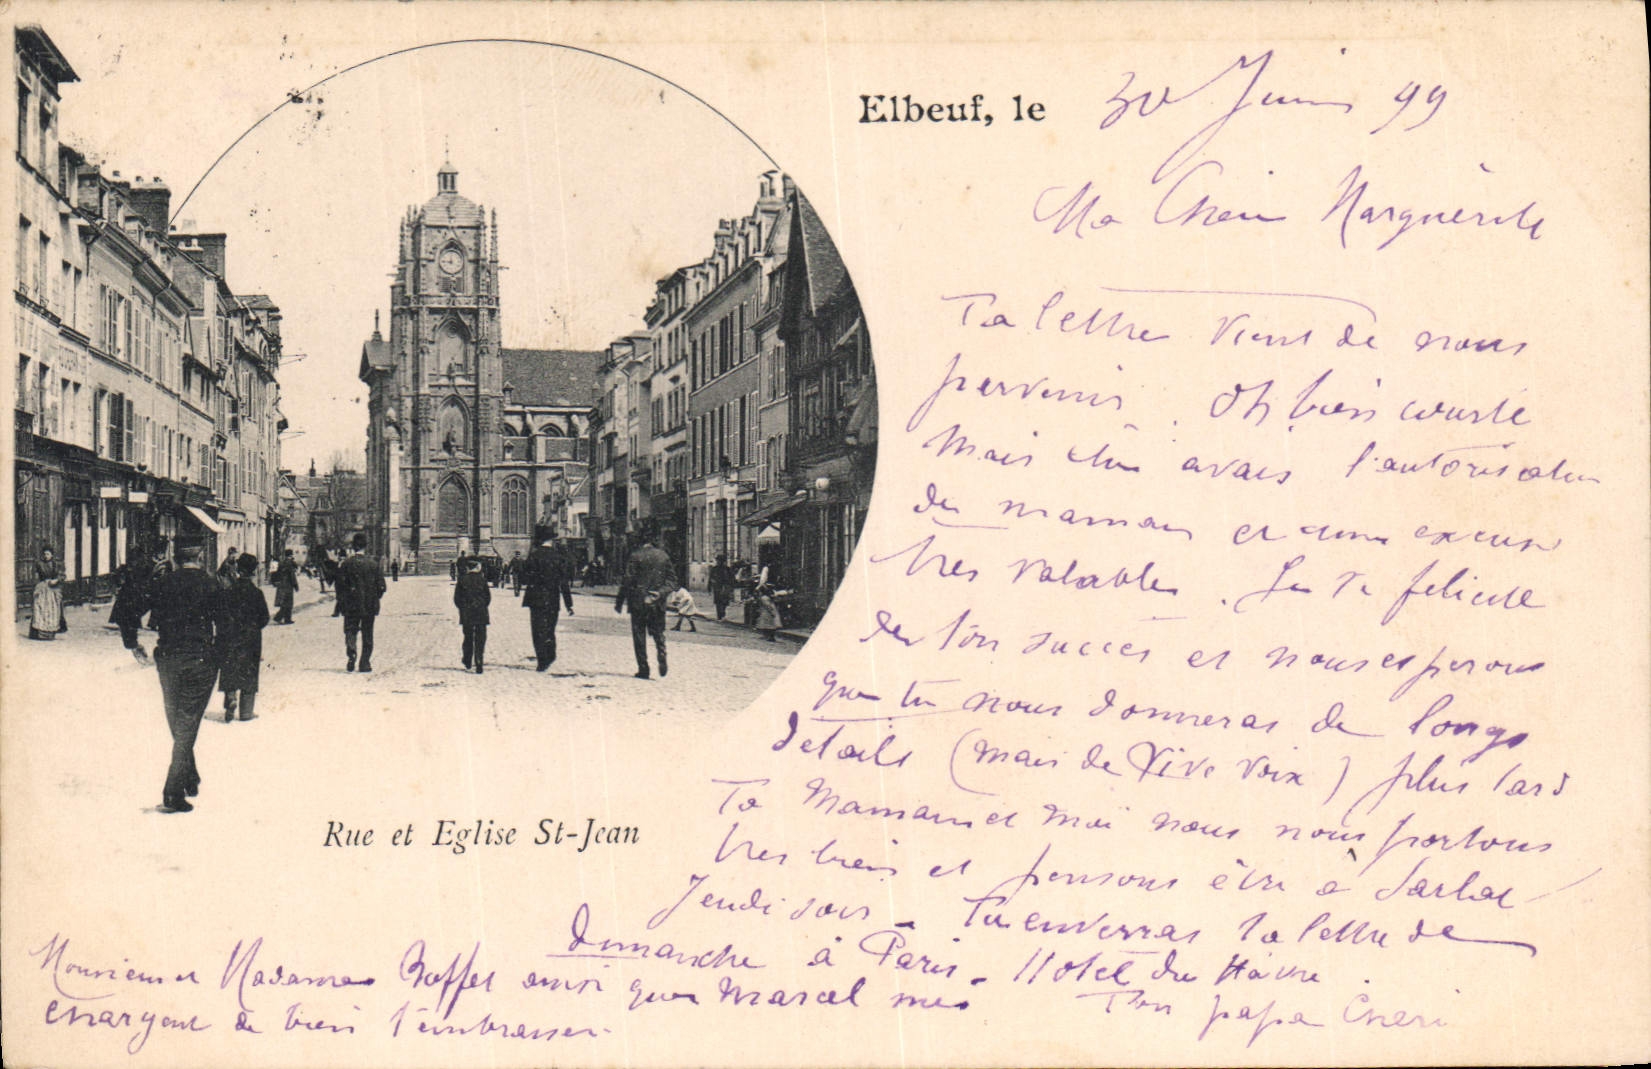 Elbeuf, le 30 Juin 99
Ma Cherie Marguerite
Ta lettre vient de nous
parvenir. Oh bien courte
mais tu avais l'autorisation
de maman et une excuse
très valable. Je te félicite
de ton succès et nous esperons
que tu nous donneras de longs
détails (mais de vive voix) plus tard
Ta Maman et moi nous nous portons
très bien et pensons être à Sarlat
Jeudi soir - Tu enverras ta lettre de
dimanche à Paris - Hotel du Hâvre.
Ton papa Cheri
Monsieur et Madame Boffet ainsi que Marcel me
chargent de bien t'embrasser.
Rue et Eglise St-Jean